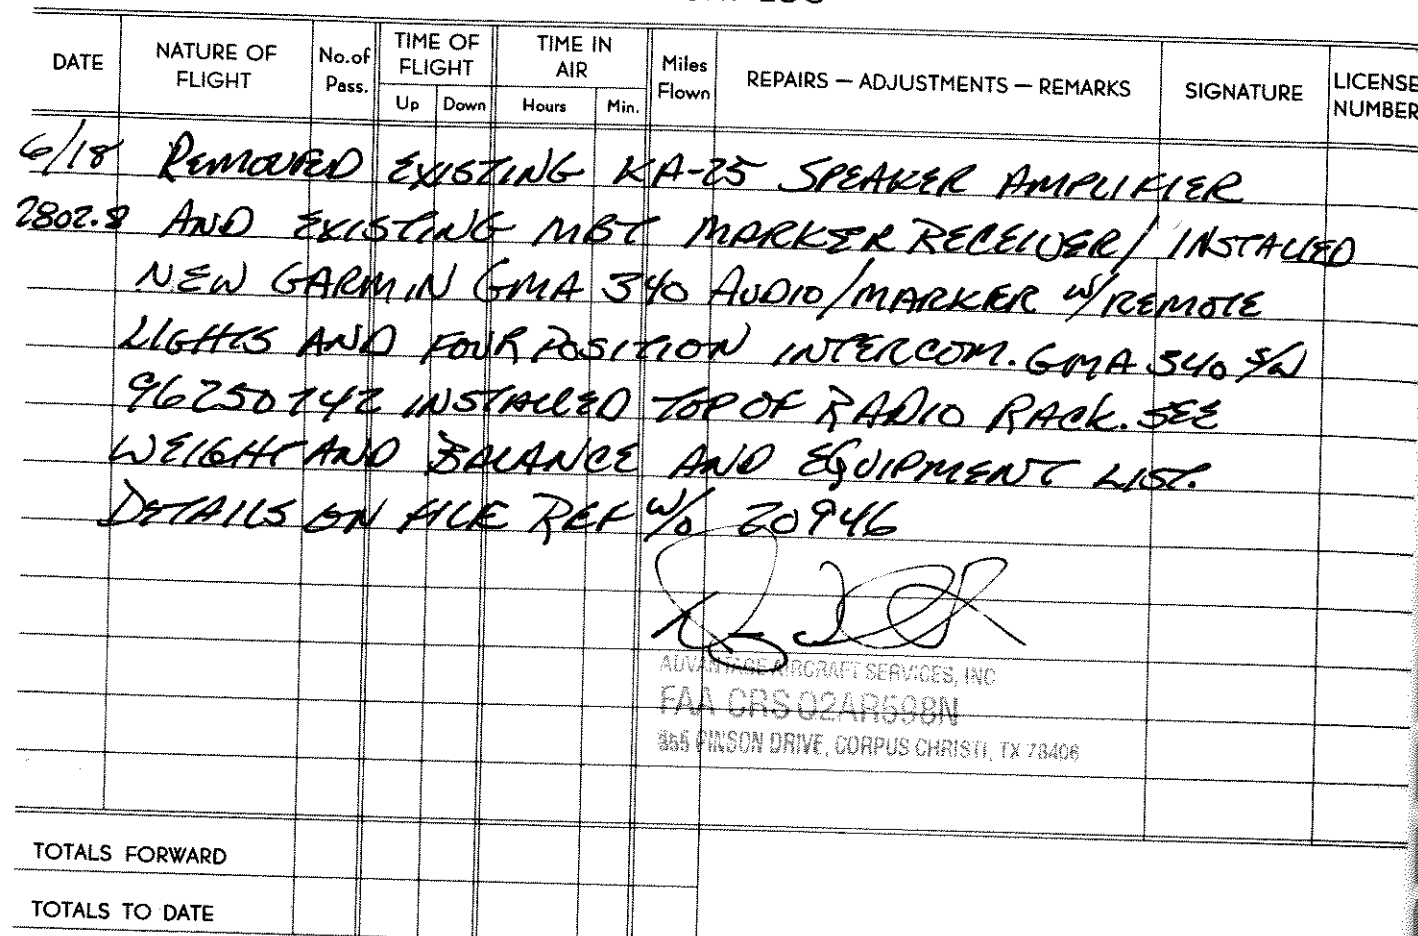 DATE NATURE OF FLIGHT No.of Pass. TIME OF FLIGHT TIME IN AIR Miles Flown REPAIRS — ADJUSTMENTS — REMARKS SIGNATURE LICENSE NUMBER
Up Down Hours Min.
6/18 REMOVED EXISTING KA-25 SPEAKER AMPLIFIER
2802.8 AND EXISTING MBT MARKER RECEIVER/ INSTALLED
NEW GARMIN GMA 340 AUDIO/MARKER W/REMOTE
LIGHTS AND FOUR POSITION INTERCOM. GMA 340 S/N
96250742 INSTALLED TOP OF RADIO RACK. SEE
WEIGHT AND BALANCE AND EQUIPMENT LIST.
DETAILS ON FILE REF W/O 20946
ADVANTAGE AIRCRAFT SERVICES, INC
FAA CRS 02AR598N
355 PINSON DRIVE, CORPUS CHRISTI, TX 78406
TOTALS FORWARD
TOTALS TO DATE